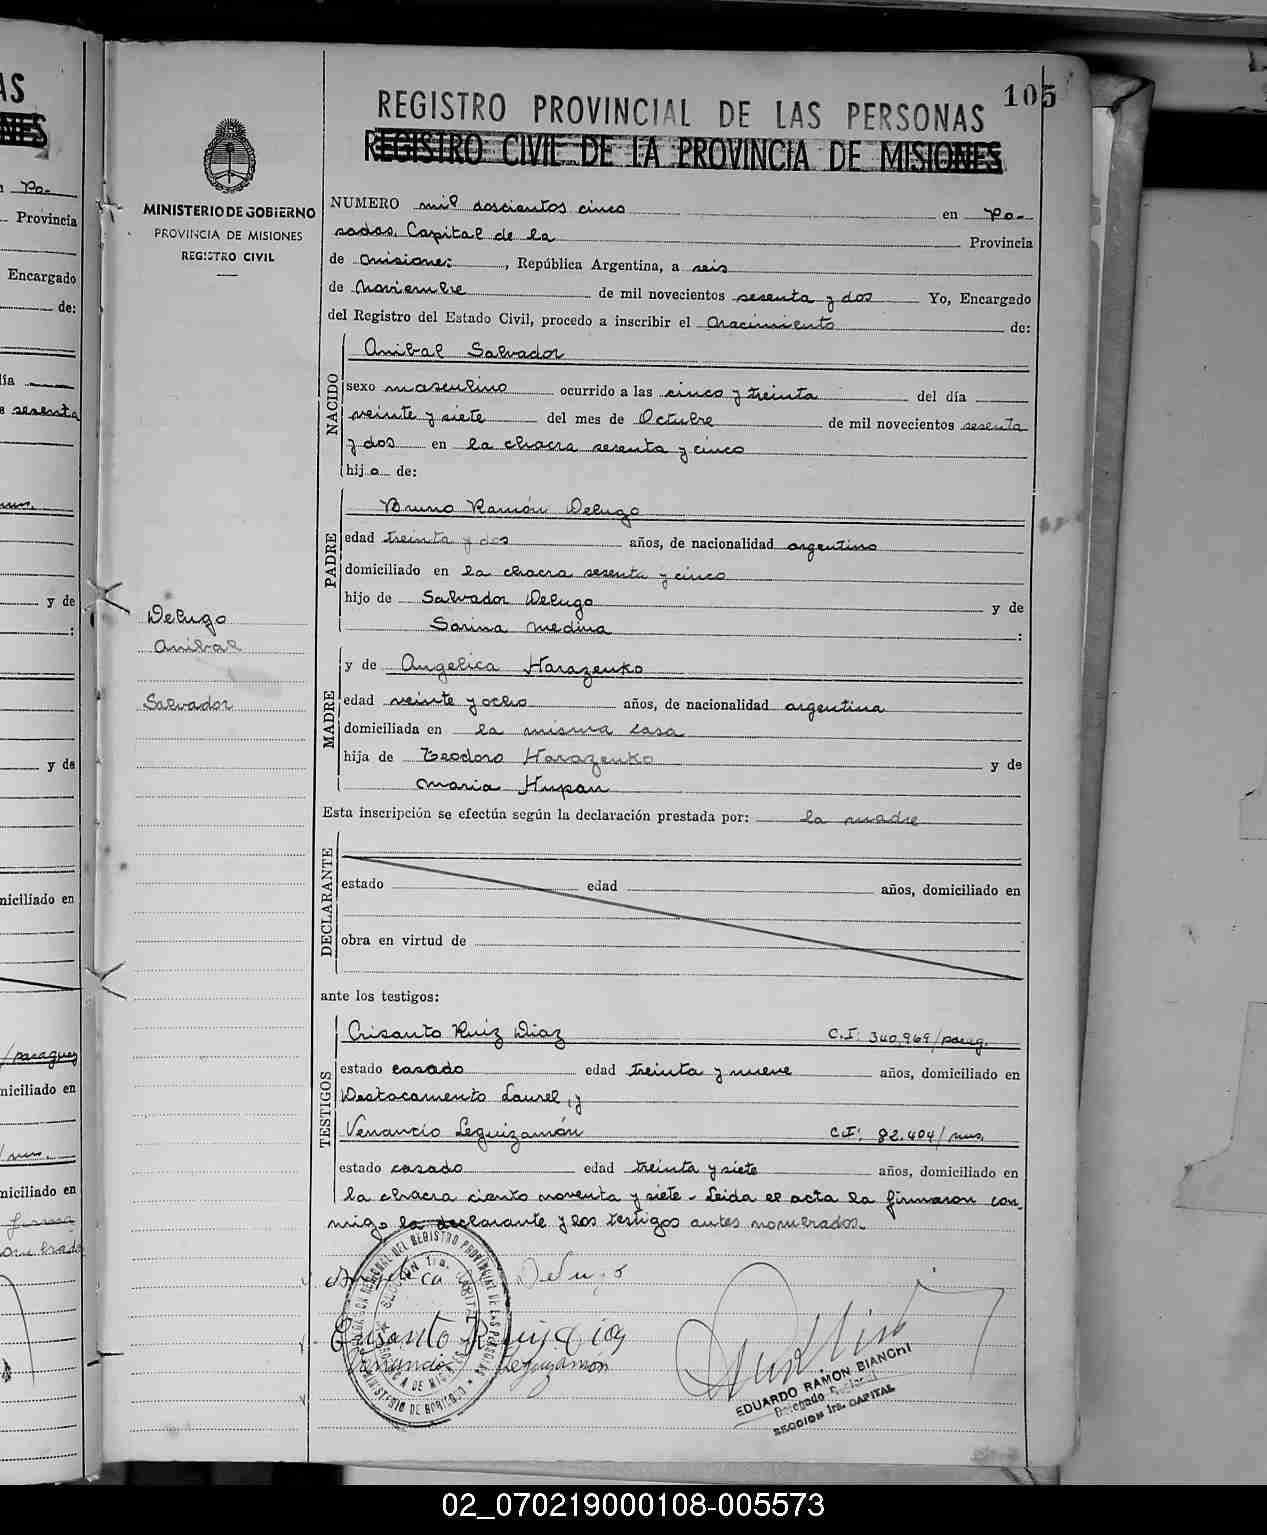 AS
NES
105
REGISTRO PROVINCIAL DE LAS PERSONAS
REGISTRO CIVIL DE LA PROVINCIA DE MISIONES
MINISTERIO DE GOBIERNO
PROVINCIA DE MISIONES
REGISTRO CIVIL
Po-
Provincia
Encargado
de:
día
sesenta
y de
:
y de
niciliado en
/paraguay
niciliado en
niciliado en
NUMERO mil doscientos cinco en Po-
sadas, Capital de la Provincia
de Misiones, República Argentina, a seis
de Noviembre de mil novecientos sesenta y dos Yo, Encargado
del Registro del Estado Civil, procedo a inscribir el Nacimiento de:
NACIDO
Anibal Salvador
sexo masculino ocurrido a las cinco y treinta del día
veinte y siete del mes de Octubre de mil novecientos sesenta
y dos en la chacra sesenta y cinco
hijo de:
PADRE
Bruno Ramón Delugo
edad treinta y dos años, de nacionalidad argentino
domiciliado en la chacra sesenta y cinco
hijo de Salvador Delugo y de
Sarina Medina :
Delugo
Anibal
Salvador
MADRE
y de Angelica Harazenko
edad veinte y ocho años, de nacionalidad argentina
domiciliada en la misma casa
hija de Teodoro Harazenko y de
Maria Hupan
Esta inscripción se efectúa según la declaración prestada por: la madre
DECLARANTE
estado edad años, domiciliado en
obra en virtud de
ante los testigos:
TESTIGOS
Crisanto Ruiz Diaz C.I: 340,969/parag.
estado casado edad treinta y nueve años, domiciliado en
Destacamento Laurel, y
Venancio Leguizamón C.I: 82.404/mis.
estado casado edad treinta y siete años, domiciliado en
la chacra ciento noventa y siete - Leida el acta la firmaron con
migo la declarante y los testigos antes nombrados.
Angelica Delugo
Crisanto Ruiz Diaz
Venancio Leguizamon
EDUARDO RAMON BIANCHI
Delegado Seccional
SECCION 1ra. CAPITAL
02_070219000108-005573